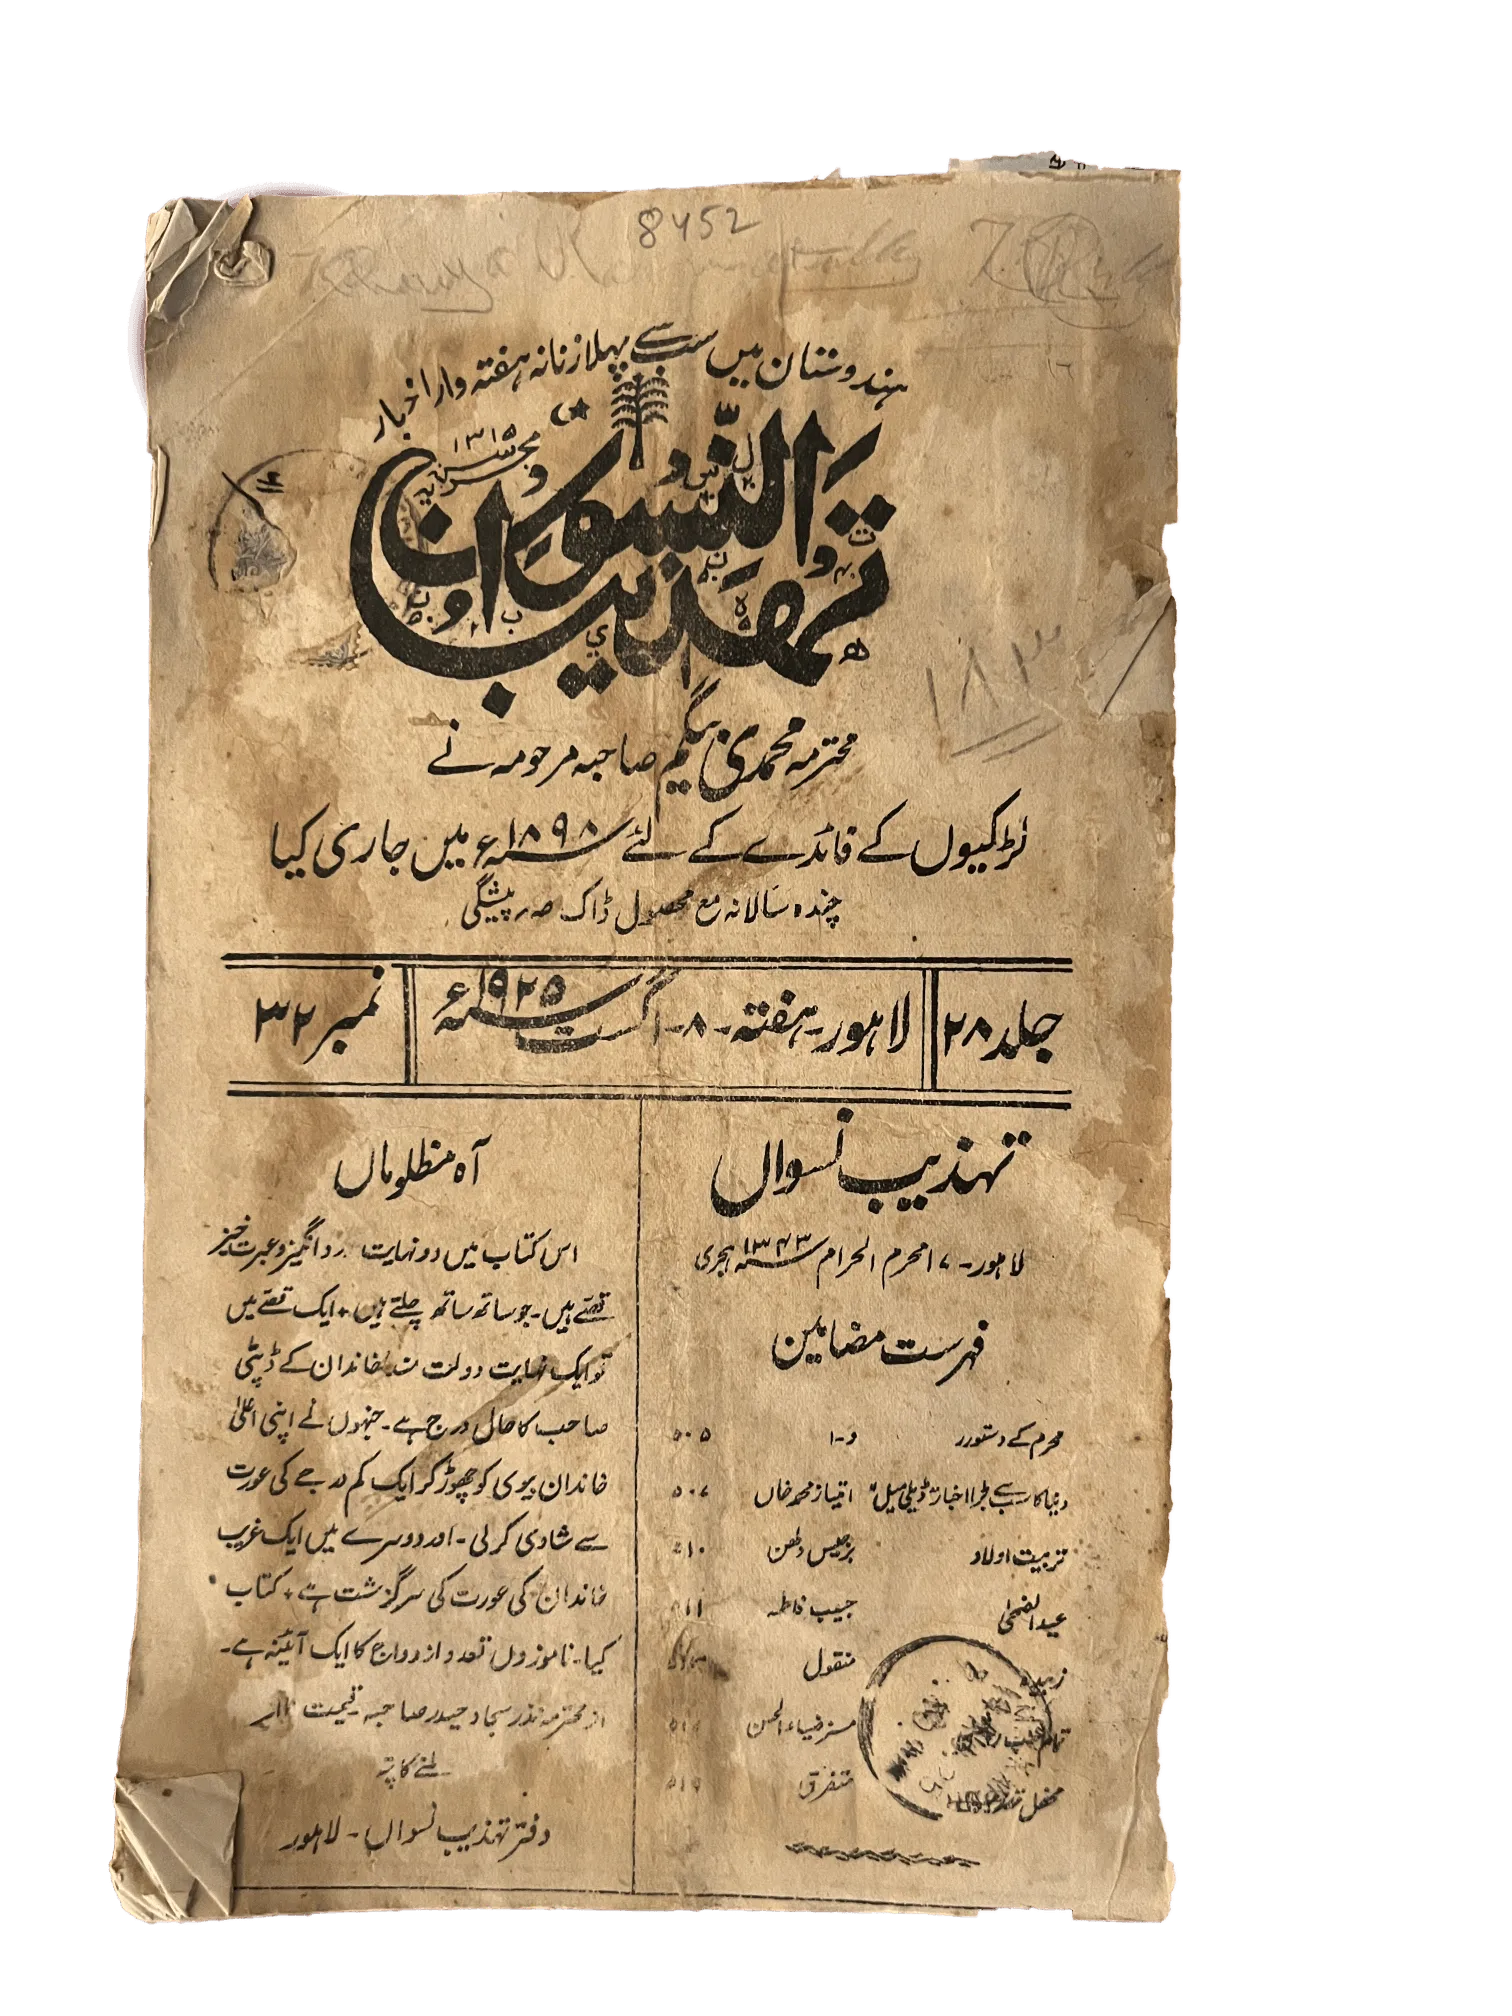 8452
ہندوستان میں سب سے پہلا زنانہ ہفتہ وار اخبار
محرم سنہ ۱۳۱۵
تہذیب النسوان
۱۸۳
محترمہ محمدی بیگم صاحبہ مرحومہ نے
لڑکیوں کے فائدے کے لئے سنہ ۱۸۹۸ء میں جاری کیا
چندہ سالانہ مع محصول ڈاک صہ ر پیشگی
جلد ۲۸
لاہور۔ ہفتہ۔ ۸۔ اگست سنہ ۱۹۲۵ء
نمبر ۳۲
تہذیب نسواں
لاہور۔ ۱۷ محرم الحرام سنہ ۱۳۴۳ ہجری
فہرست مضامین
محرم کے دستور و۔ا ۵۰۵
دنیا کا سب سے بڑا اخبار "ڈیلی میل" امتیاز محمد خاں ۵۰۷
تربیت اولاد برجیس دلھن ۵۱۰
عید الضحیٰ حبیب فاطمہ ۵۱۱
زبیدہ منقول
مسز ضیاء الحسن
محفل تہذیب متفرق
آہ مظلوماں
اس کتاب میں دو نہایت درد انگیز و عبرت خیز
قصے ہیں۔ جو ساتھ ساتھ چلتے ہیں۔ ایک قصے میں
تو ایک نہایت دولت مند خاندان کے ڈپٹی
صاحب کا حال درج ہے۔ جنہوں نے اپنی اعلیٰ
خاندان بیوی کو چھوڑ کر ایک کم درجے کی عورت
سے شادی کرلی۔ اور دوسرے میں ایک غریب
خاندان کی عورت کی سرگزشت ہے۔ کتاب
کیا۔ ناموزوں تعدد ازدواج کا ایک آئینہ ہے۔
از محترمہ نذر سجاد حیدر صاحبہ قیمت
ملنے کا پتہ
دفتر تہذیب نسواں۔ لاہور